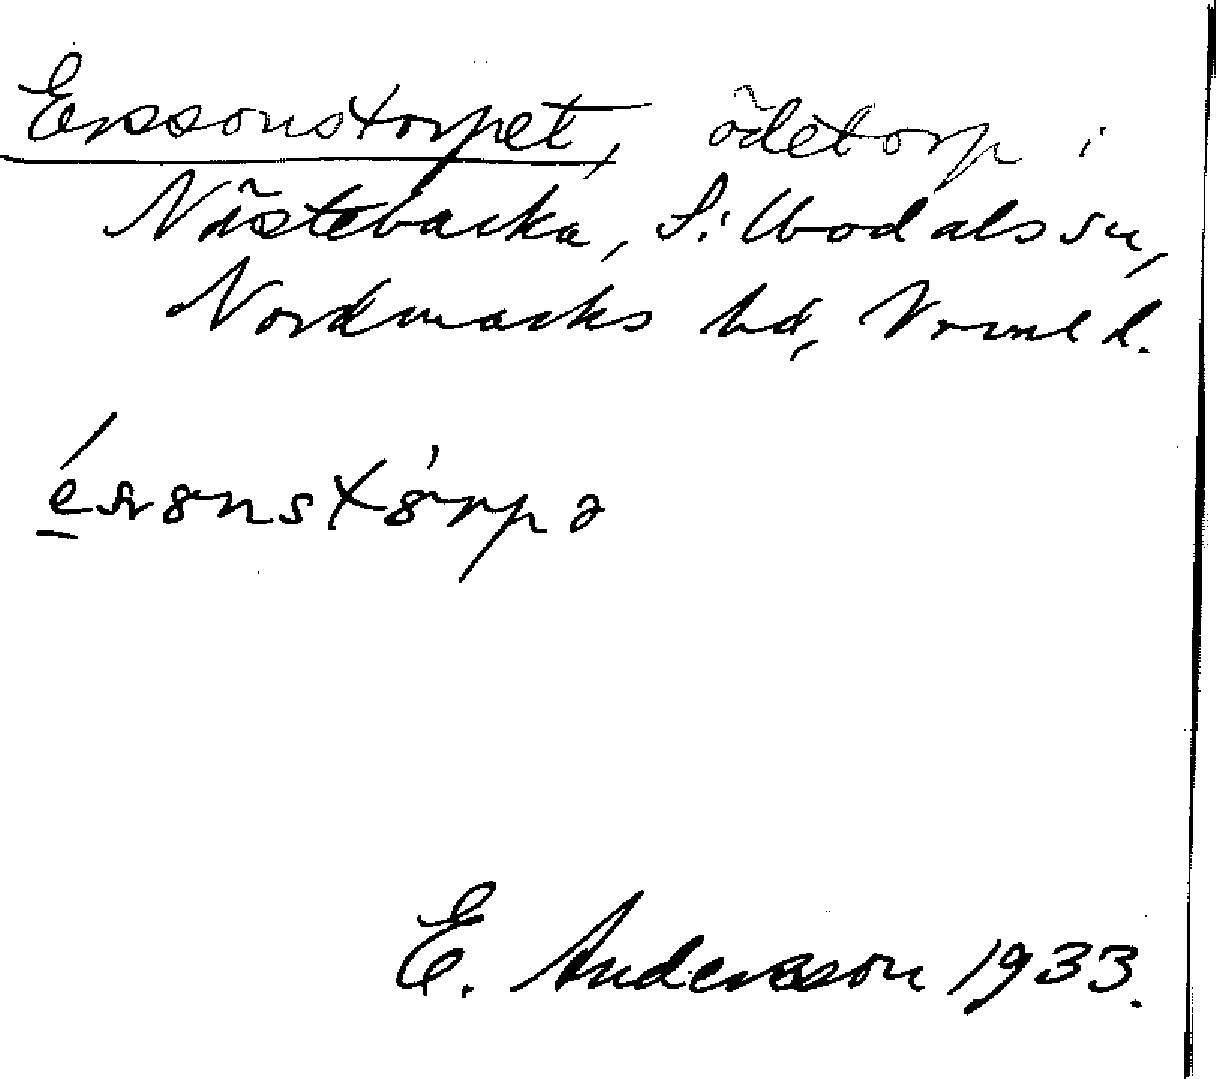 Erssonstorpet, ödetorp i
Nästebacka, Silbodals sn,
Nordmarks hd, Värml.
E. Andersson 1933.